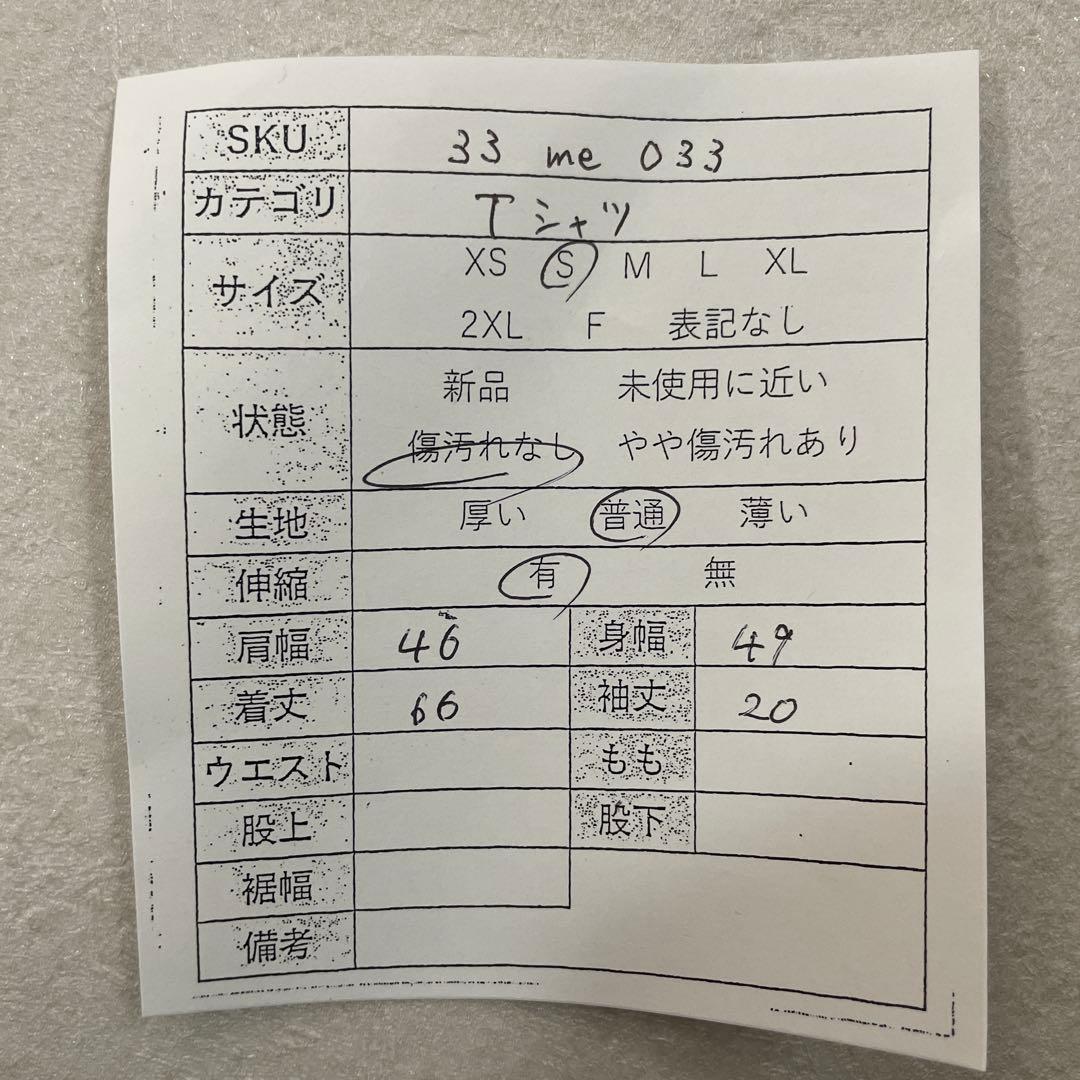 SKU 33 me 033
カテゴリ Tシャツ
サイズ XS S M L XL
2XL F 表記なし
状態 新品 未使用に近い
傷汚れなし やや傷汚れあり
生地 厚い 普通 薄い
伸縮 有 無
肩幅 46 身幅 49
着丈 66 袖丈 20
ウエスト もも
股上 股下
裾幅
備考